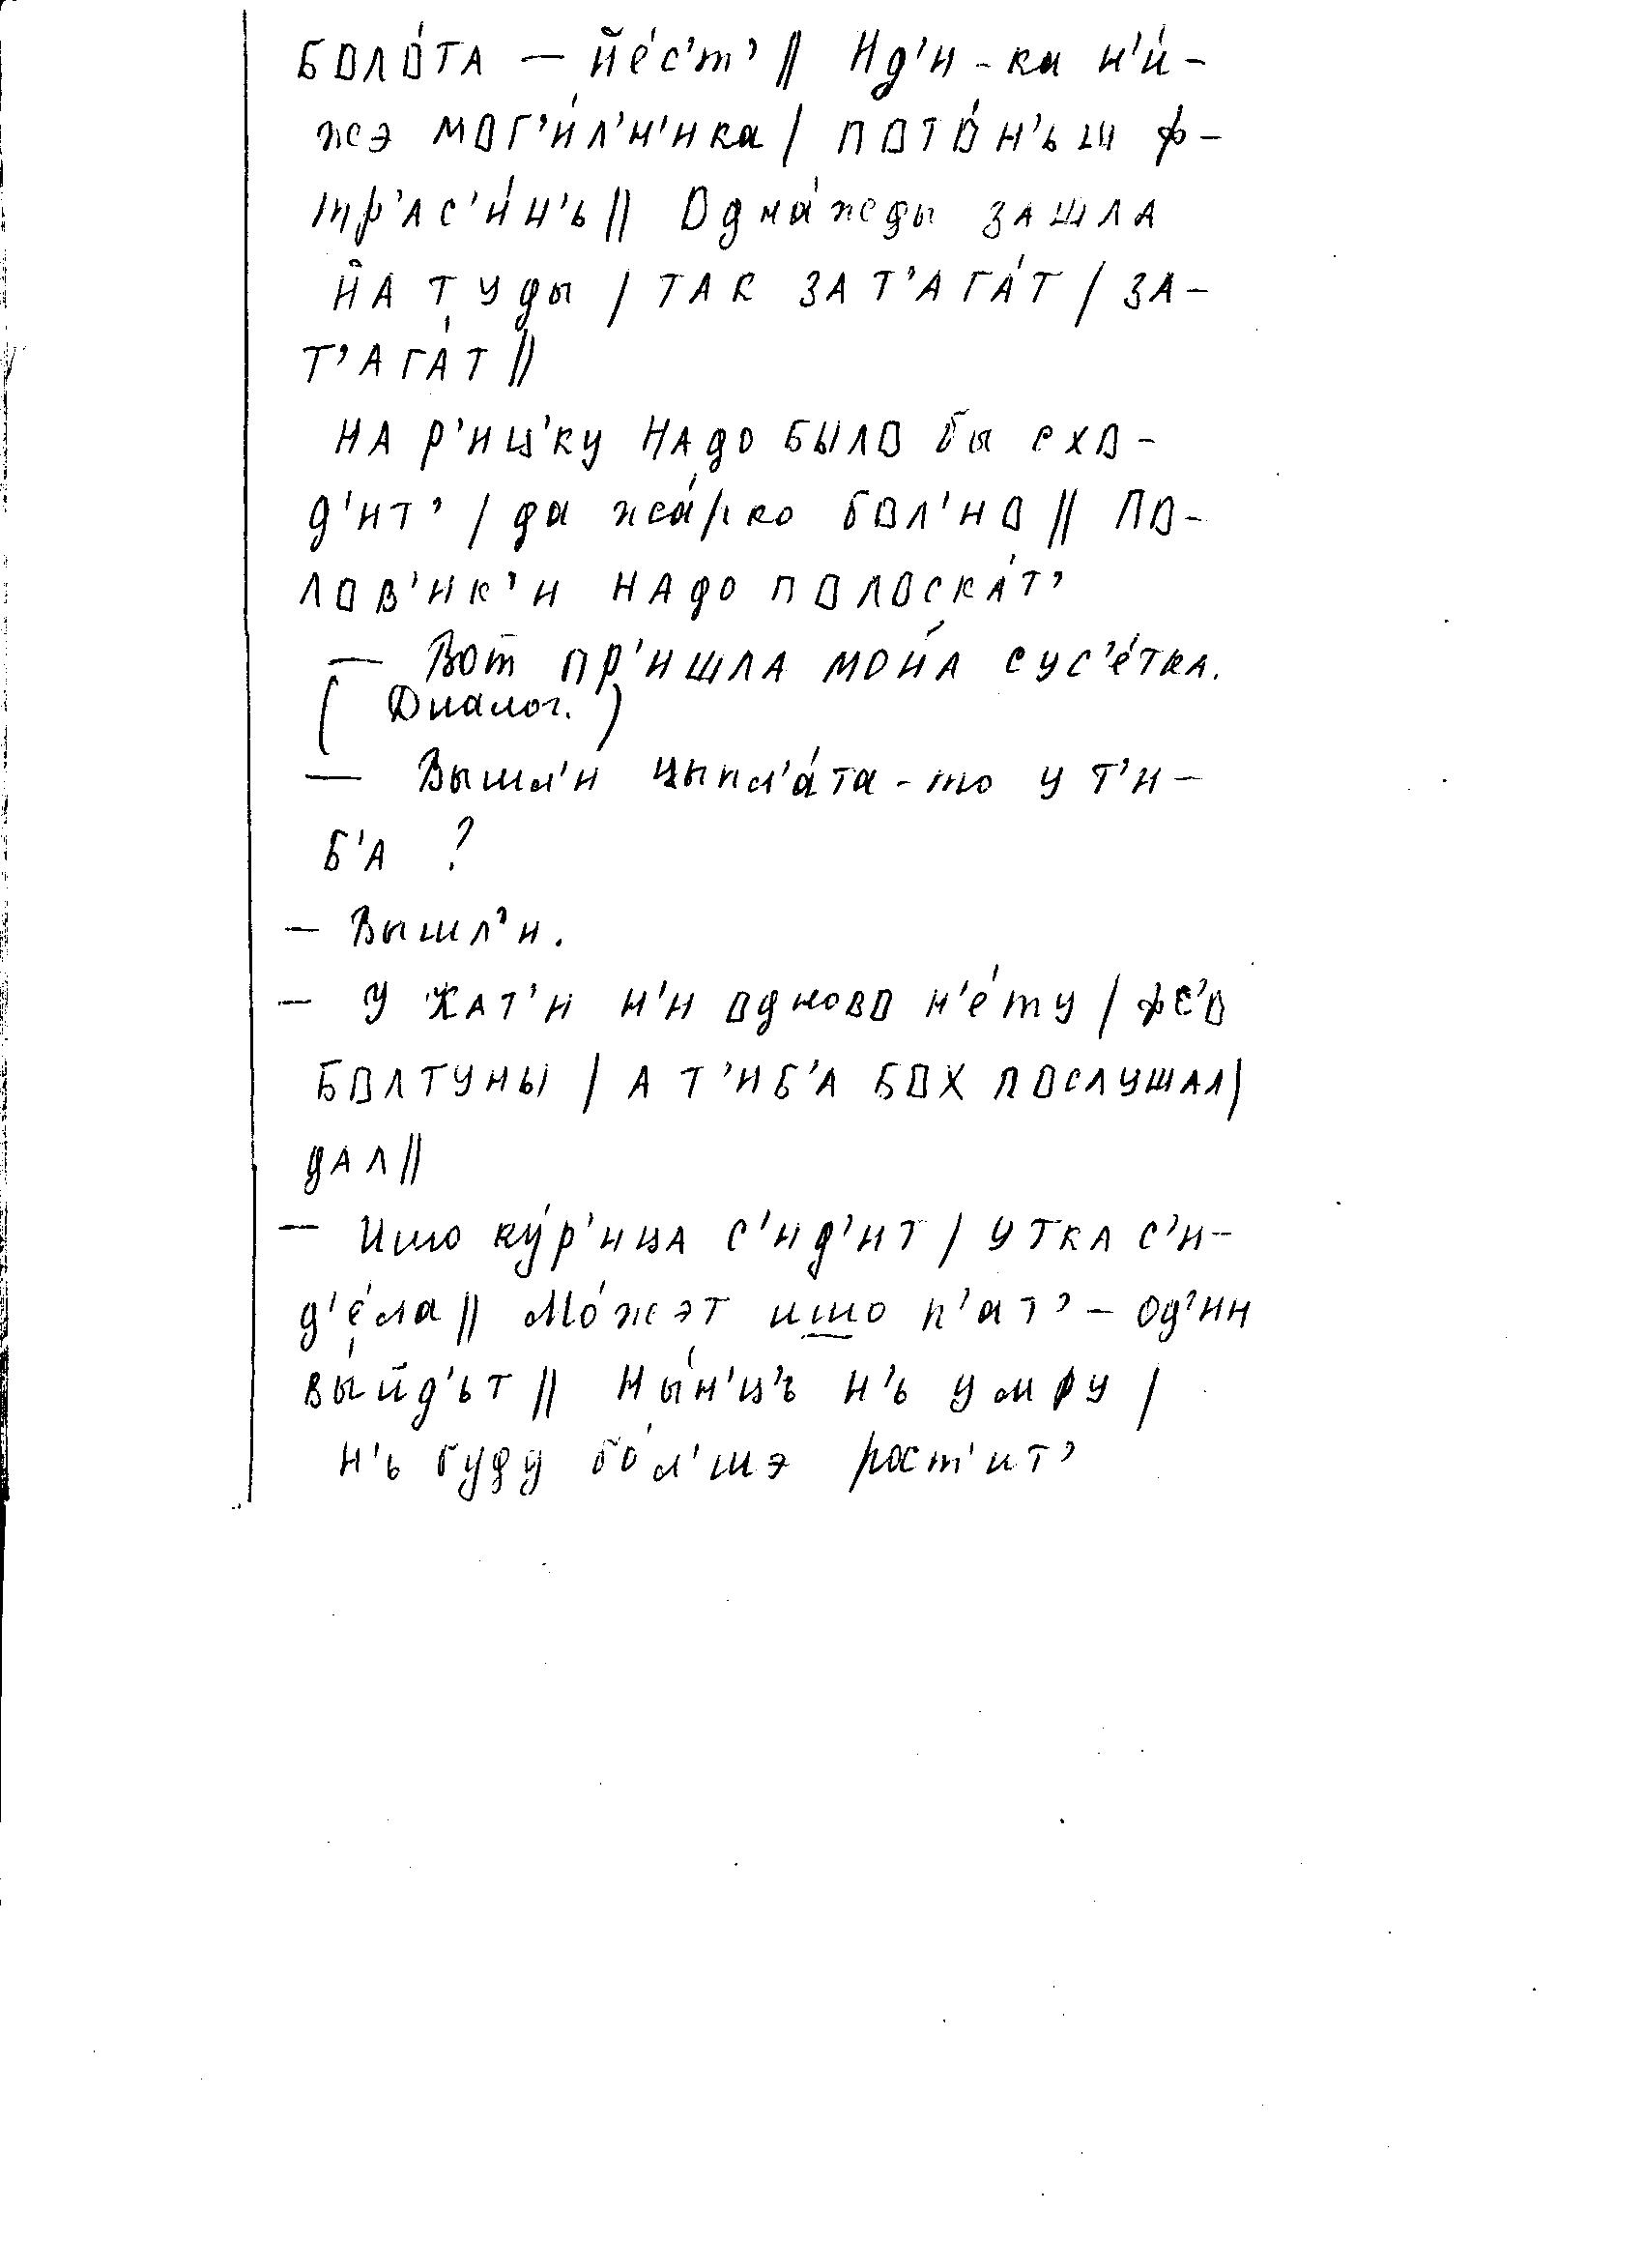 боло́та – йе́с'т' // Ид'и-ка н'и́-
жэ мог'и́л'н'ика / пото́н'ьш ф-
тр'ас'и́н'ь // Одна́жды зашла
йа туды / так зат'ага́т / за-
т'ага́т //
на р'иц'ку надо было бы схо-
д'ит' / да жа́рко бол'но // По-
лов'ик'и надо полоска́т'
– Вот пр'ишла мойа́ сус'е́тка.
(Диалог.)
– Вышл'и цыпл'а́та-то у т'и-
б'а ?
– Вышл'и.
– У Кат'и н'и одново н'е́ту / фс'о
болтуны / а т'иб'а бох послушал /
дал //
– Ишо ку́р'ица с'ид'ит / утка с'и-
д'е́ла // Мо́жэт ишо п'ат'-од'ин
вы́йд'ьт // Ны́н'ц'ъ н'ь умру /
н'ь буду бо́л'шэ рост'ит'